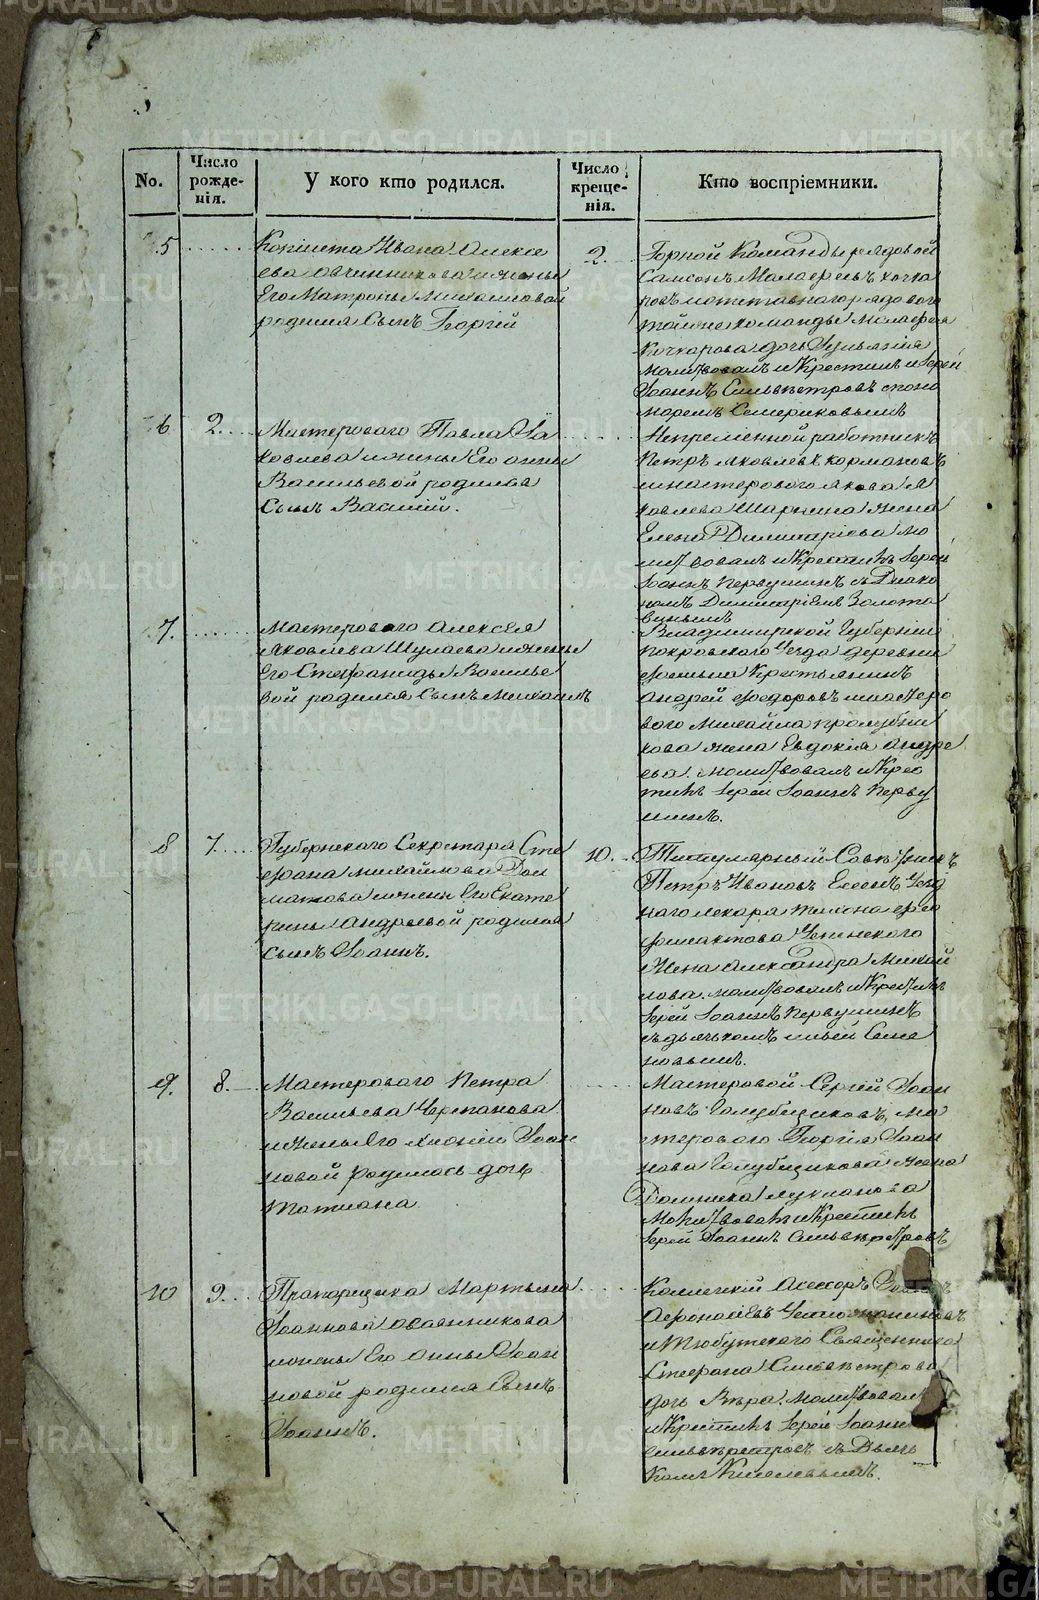 No.
Число рожде-нія.
У кого кто родился.
Число креще-нія.
Кто воспріемники.
5
Копіиста Ивана Алексе
ева Овчинникова и жены
Его Матроны Михаиловой
родился Сынъ Георгій
2.
Горной Команды рядовой
Самсонъ Малафеевъ
отставнаго рядоваго
тойже команды Малафея
Кочкарова дочь
молитвовалъ и Крестилъ Іерей
Іоаннъ Сильвестровъ с поно
маремъ Семериковымъ
6
2.
Мастероваго Павла Я
ковлева и жены Его Анны
Васильевой родился
Сынъ Василій.
Непременной работникъ
Петръ Яковлевъ
и мастероваго Якова Я
ковлева жена
Елена Димитріева мо
литвовалъ и Крестилъ Іерей
Іоаннъ Первушинъ с Диако
номъ Димитріемъ Золота
7.
Мастероваго Алексея
Яковлева Шулаева и жены
Его Стефаниды Василье
вой родился Сынъ Михаилъ
Владимирской Губерніи
Покровскаго Уезда деревни
Крестьянинъ
Андрей Федоровъ и мастеро
ваго Михайла
кова жена Евдокія Андре
ева. молитвовалъ и Крес
тилъ Іерей Іоаннъ Перву
шинъ.
8
7.
Губернскаго Секретаря Сте
фана Михайлова Дол
матова и жены Его Екате
рины Андреевой родился
сынъ Іоаннъ.
10.
Титулярный Советникъ
Петръ Ивановъ Уезд
наго лекаря
Успенскаго
Жена Александра Михай
лова. молитвовалъ и Крестилъ
Іерей Іоаннъ Первушинъ
съ дьячкомъ Ильей Семе
новымъ.
9.
8.
Мастероваго Петра
Васильева Черепанова
и жены Его Хионіи Іоан
новой родилась дочь
Татиана
Мастеровой Сергей Іоан
новъ Голубщиковъ, ма
стероваго Георгія Іоан
нова Голубщикова жена
Домника Лукианова
Молитвовалъ и Крестилъ
Іерей Іоаннъ Сильвестровъ
10
9.
Прапорщика Мартына
Іоаннова Овсянникова
и жены Его Анны Іоан
новой родился Сынъ
Іоаннъ.
Колежскій Асессоръ
и Тюбукскаго Священника
Стефана Сильвестрова
дочь Вера. молитвовалъ
и Крестилъ Іерей Іоаннъ
Сильвестровъ съ Дьяч
комъ Киселевымъ.
METRIKI.GASO-URAL.RU